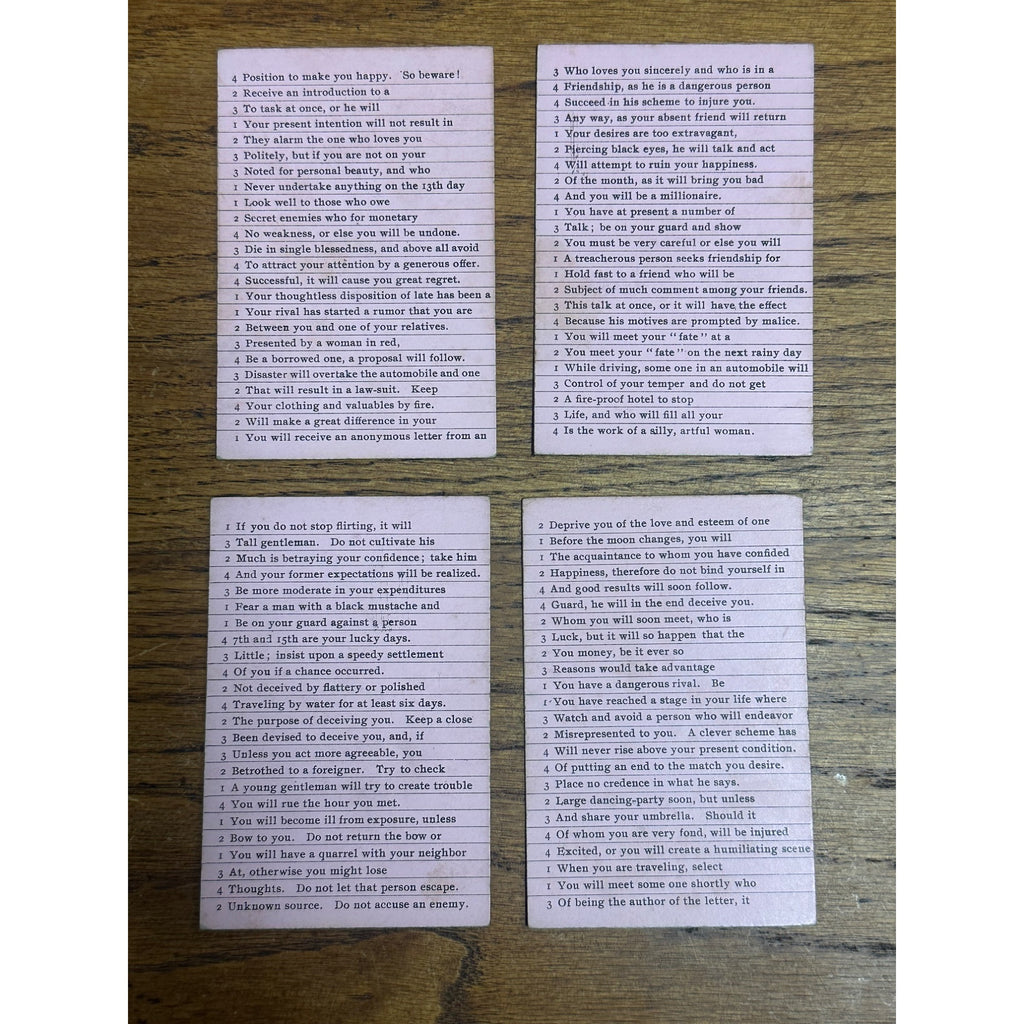 4 Position to make you happy. So beware!
2 Receive an introduction to a
3 To task at once, or he will
1 Your present intention will not result in
2 They alarm the one who loves you
3 Politely, but if you are not on your
3 Noted for personal beauty, and who
1 Never undertake anything on the 13th day
1 Look well to those who owe
2 Secret enemies who for monetary
4 No weakness, or else you will be undone.
3 Die in single blessedness, and above all avoid
4 To attract your attention by a generous offer.
4 Successful, it will cause you great regret.
1 Your thoughtless disposition of late has been a
1 Your rival has started a rumor that you are
2 Between you and one of your relatives.
3 Presented by a woman in red,
4 Be a borrowed one, a proposal will follow.
3 Disaster will overtake the automobile and one
2 That will result in a law-suit. Keep
4 Your clothing and valuables by fire.
2 Will make a great difference in your
1 You will receive an anonymous letter from an
3 Who loves you sincerely and who is in a
4 Friendship, as he is a dangerous person
4 Succeed in his scheme to injure you.
3 Any way, as your absent friend will return
1 Your desires are too extravagant,
2 Piercing black eyes, he will talk and act
4 Will attempt to ruin your happiness.
2 Of the month, as it will bring you bad
4 And you will be a millionaire.
1 You have at present a number of
3 Talk; be on your guard and show
2 You must be very careful or else you will
1 A treacherous person seeks friendship for
1 Hold fast to a friend who will be
2 Subject of much comment among your friends.
3 This talk at once, or it will have the effect
4 Because his motives are prompted by malice.
1 You will meet your "fate" at a
2 You meet your "fate" on the next rainy day
1 While driving, some one in an automobile will
3 Control of your temper and do not get
2 A fire-proof hotel to stop
3 Life, and who will fill all your
4 Is the work of a silly, artful woman.
1 If you do not stop flirting, it will
3 Tall gentleman. Do not cultivate his
2 Much is betraying your confidence; take him
4 And your former expectations will be realized.
3 Be more moderate in your expenditures
1 Fear a man with a black mustache and
1 Be on your guard against a person
4 7th and 15th are your lucky days.
3 Little; insist upon a speedy settlement
4 Of you if a chance occurred.
2 Not deceived by flattery or polished
4 Traveling by water for at least six days.
2 The purpose of deceiving you. Keep a close
3 Been devised to deceive you, and, if
3 Unless you act more agreeable, you
2 Betrothed to a foreigner. Try to check
1 A young gentleman will try to create trouble
4 You will rue the hour you met.
1 You will become ill from exposure, unless
2 Bow to you. Do not return the bow or
1 You will have a quarrel with your neighbor
3 At, otherwise you might lose
4 Thoughts. Do not let that person escape.
2 Unknown source. Do not accuse an enemy.
2 Deprive you of the love and esteem of one
1 Before the moon changes, you will
1 The acquaintance to whom you have confided
2 Happiness, therefore do not bind yourself in
4 And good results will soon follow.
4 Guard, he will in the end deceive you.
2 Whom you will soon meet, who is
3 Luck, but it will so happen that the
2 You money, be it ever so
3 Reasons would take advantage
1 You have a dangerous rival. Be
1 You have reached a stage in your life where
3 Watch and avoid a person who will endeavor
2 Misrepresented to you. A clever scheme has
4 Will never rise above your present condition.
4 Of putting an end to the match you desire.
3 Place no credence in what he says.
2 Large dancing-party soon, but unless
3 And share your umbrella. Should it
4 Of whom you are very fond, will be injured
4 Excited, or you will create a humiliating scene
1 When you are traveling, select
1 You will meet some one shortly who
3 Of being the author of the letter, it